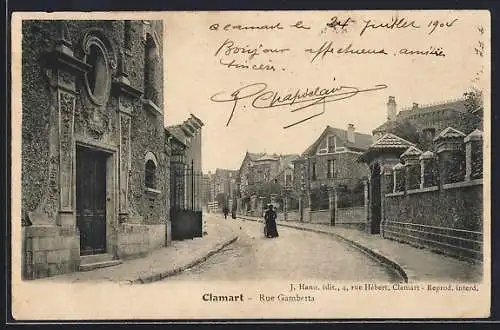 Clamart le 24 Juillet 1904
Bonjour affectueux amitié
sincère.
P. Chapoelain
J. Hano. édit., 4, rue Hébert, Clamart - Reprod. interd.
Clamart - Rue Gambetta